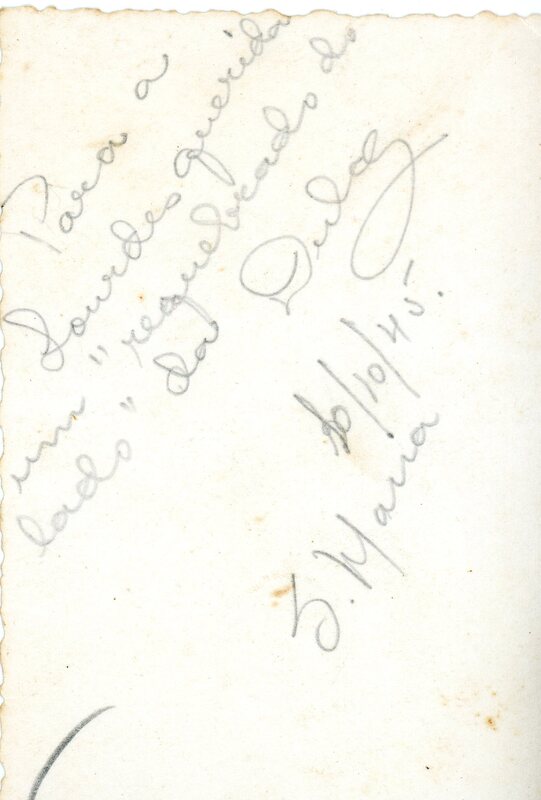 Para a
Lourdes querida
um "requebrado do
lado" da
10/10/45.
S. Maria